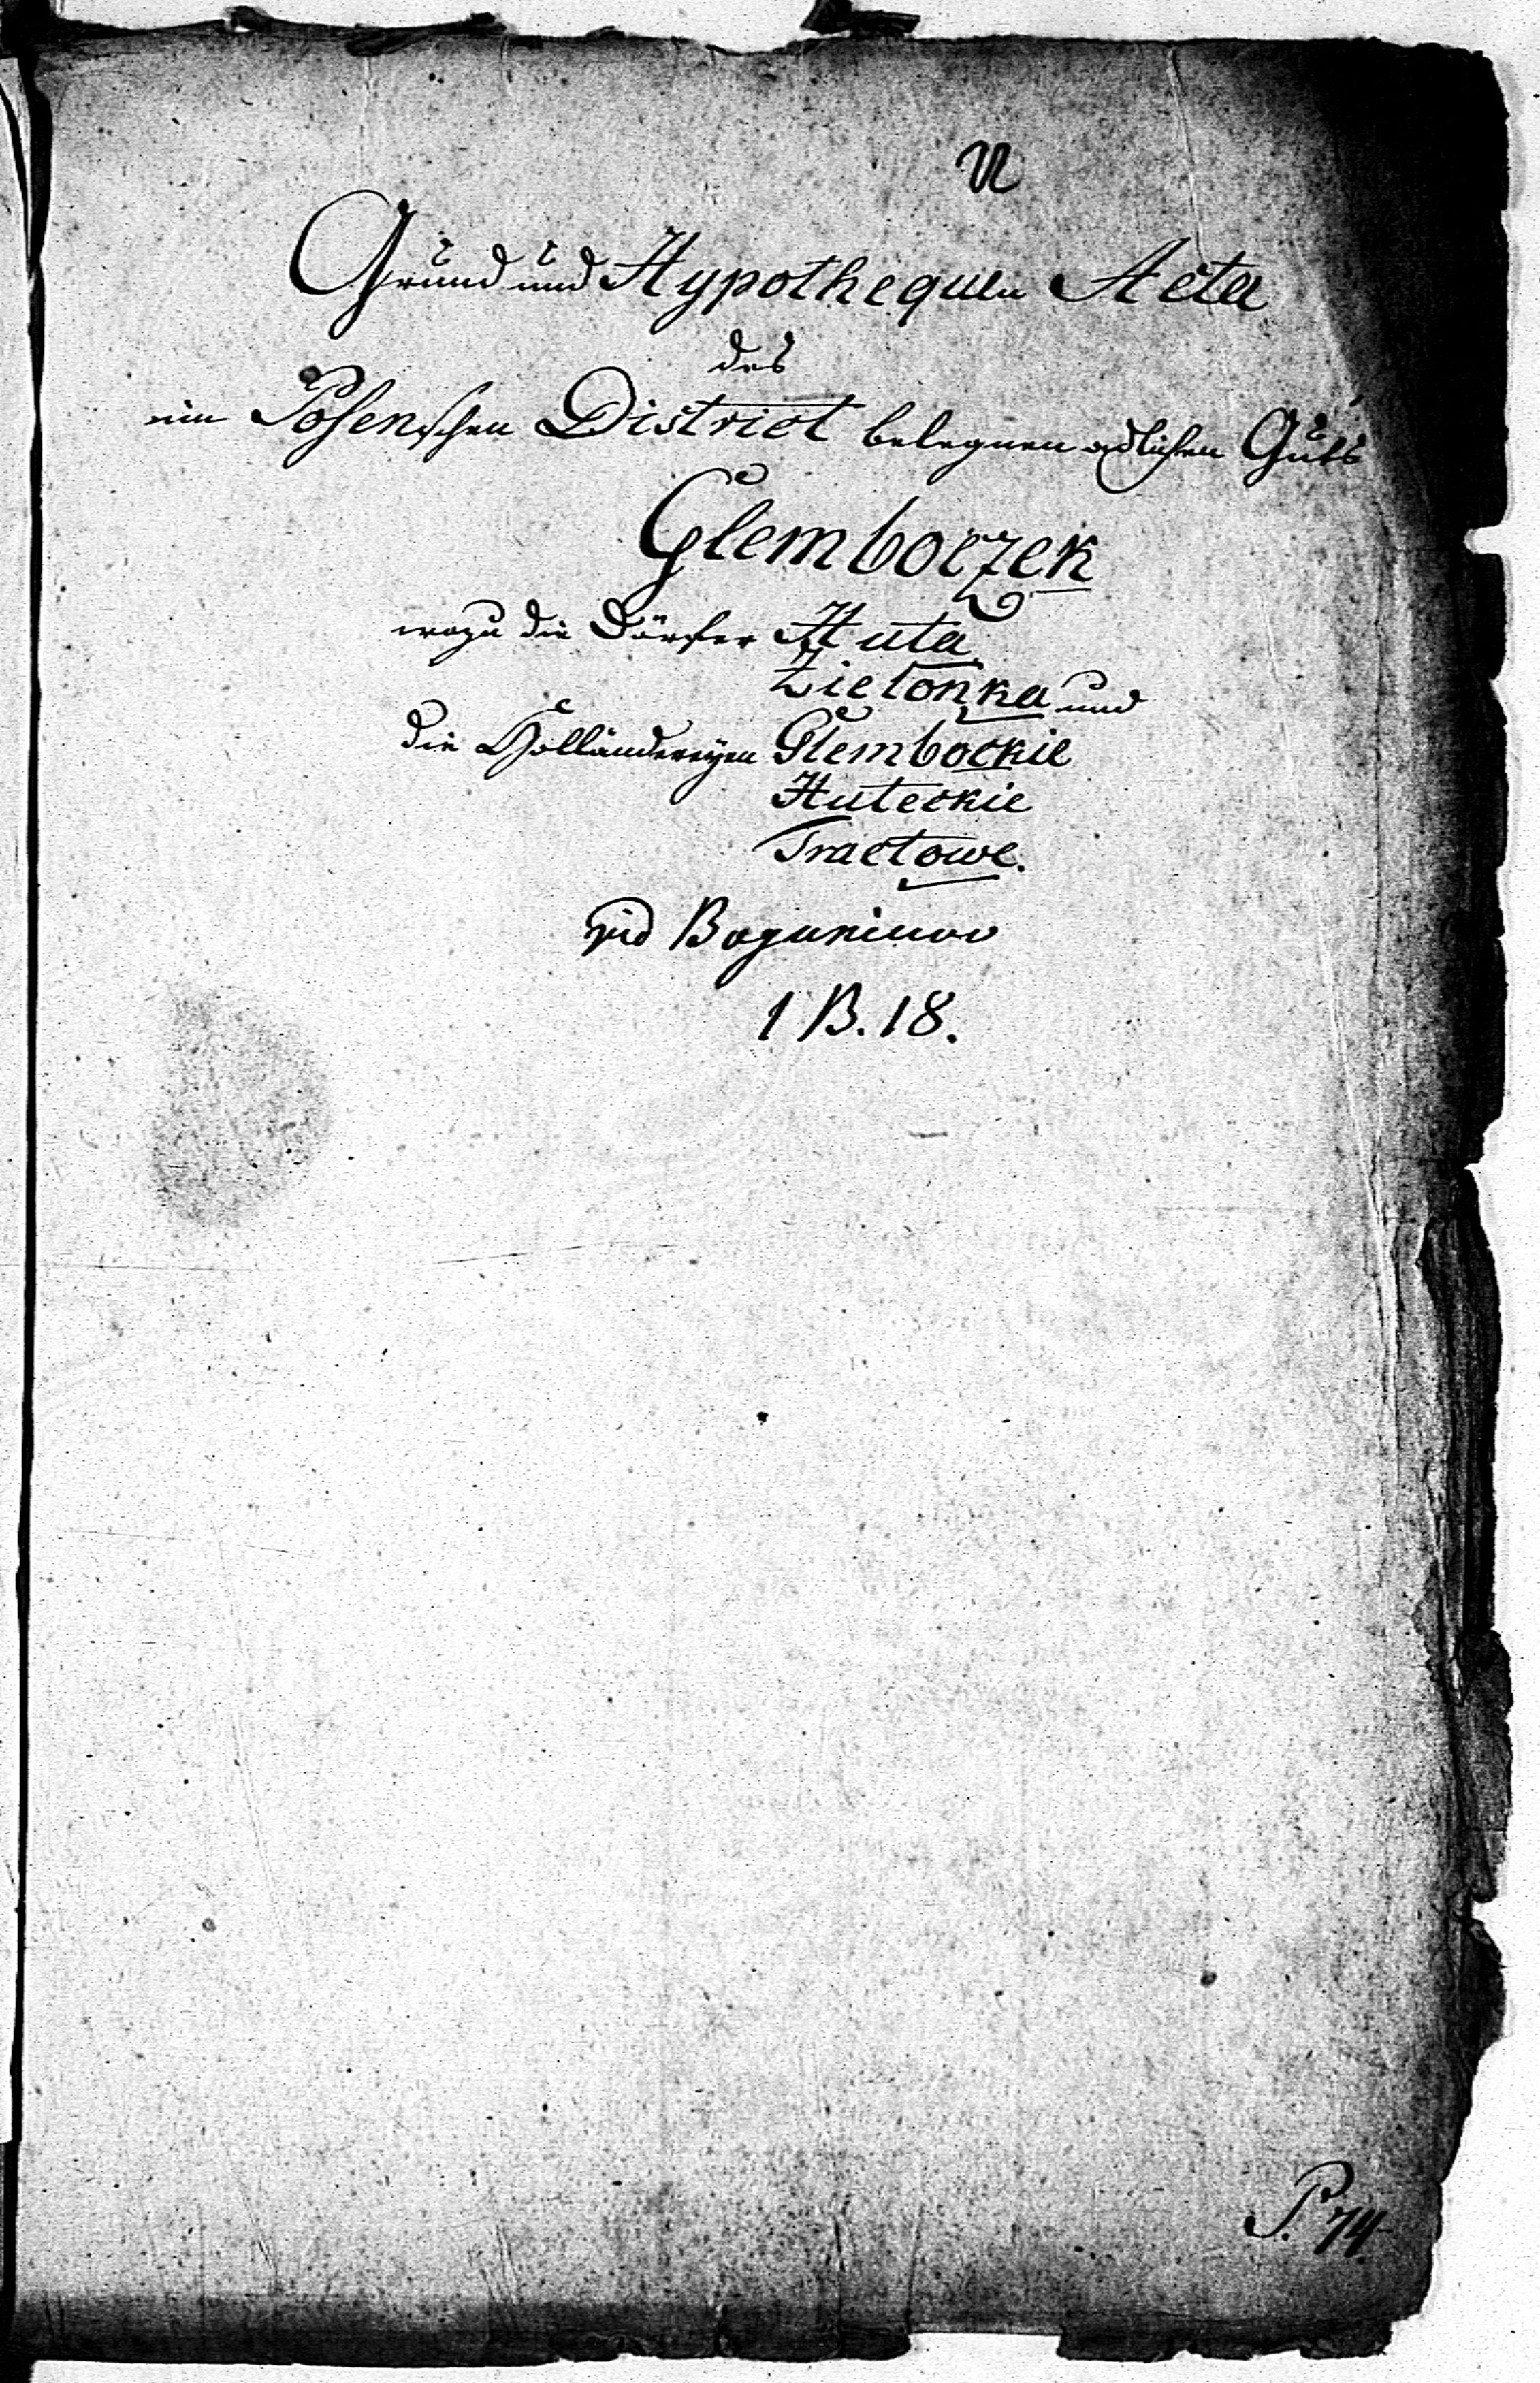 VI
Grund und Hypothequen Acta
des
im Posenschen District belegnen adlichen Guts
Glemboczek
wozu die Dörfer Huta
Zielonka und
die Holländereyen Glembockie
Huteckie
Tractowe.
vid Boguniewo
1 B. 18.
P. 74.